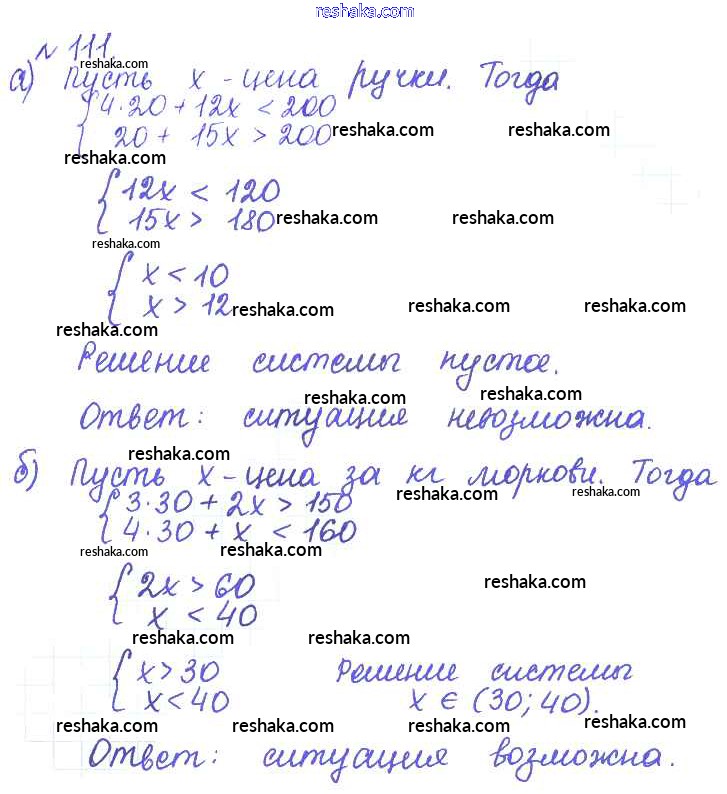 reshaka.com
№ 111.
reshaka.com
а) Пусть x - цена ручки. Тогда
{ 4·20 + 12x < 200
20 + 15x > 200 reshaka.com reshaka.com
reshaka.com
{ 12x < 120
15x > 180 reshaka.com reshaka.com
reshaka.com
{ x < 10
x > 12 reshaka.com reshaka.com reshaka.com
reshaka.com
Решение системы пустое.
reshaka.com reshaka.com
Ответ: ситуация невозможна.
reshaka.com
б) Пусть x - цена за кг моркови. Тогда
reshaka.com reshaka.com
{ 3·30 + 2x > 150
4·30 + x < 160
reshaka.com reshaka.com
{ 2x > 60 reshaka.com
x < 40
reshaka.com reshaka.com
{ x > 30 Решение системы
x < 40 x ∈ (30; 40).
reshaka.com reshaka.com reshaka.com reshaka.com
Ответ: ситуация возможна.